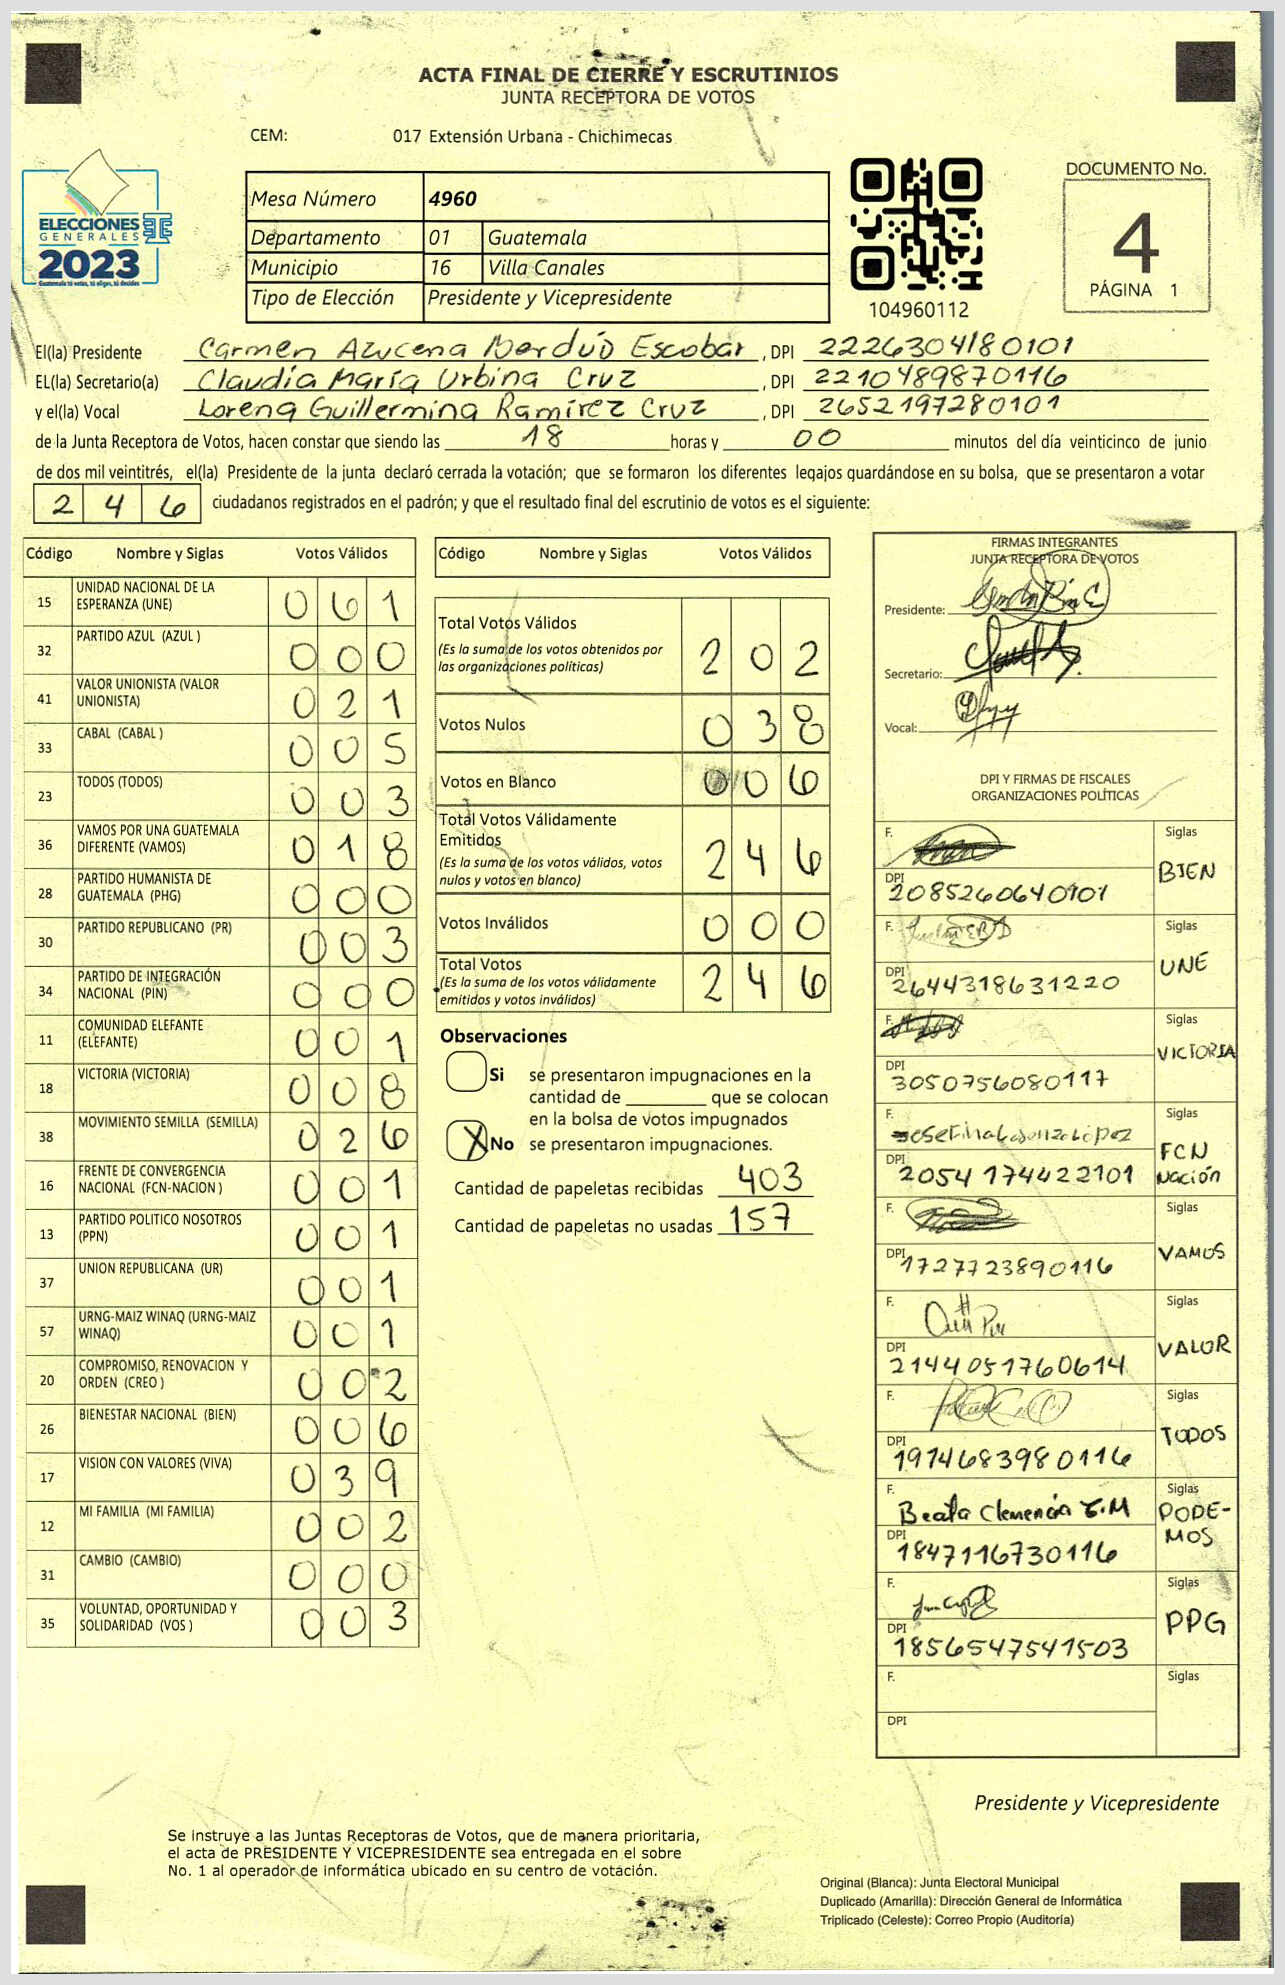 ACTA FINAL DE CIERRE Y ESCRUTINIOS
JUNTA RECEPTORA DE VOTOS
CEM: 017 Extensión Urbana - Chichimecas
ELECCIONES
GENERALES
2023
Guatemala tú votas, tú eliges, tú decides
Mesa Número 4960
Departamento 01 Guatemala
Municipio 16 Villa Canales
Tipo de Elección Presidente y Vicepresidente
104960112
DOCUMENTO No.
4
PÁGINA 1
El(la) Presidente Carmen Azucena Merdúo Escobar , DPI 2226304180101
EL(la) Secretario(a) Claudia María Urbina Cruz , DPI 2210489870116
y el(la) Vocal Lorena Guillermina Ramírez Cruz , DPI 2652197280101
de la Junta Receptora de Votos, hacen constar que siendo las 18 horas y 00 minutos del día veinticinco de junio
de dos mil veintitrés, el(la) Presidente de la junta declaró cerrada la votación; que se formaron los diferentes legajos guardándose en su bolsa, que se presentaron a votar
246 ciudadanos registrados en el padrón; y que el resultado final del escrutinio de votos es el siguiente:
Código Nombre y Siglas Votos Válidos
15 UNIDAD NACIONAL DE LA ESPERANZA (UNE) 061
32 PARTIDO AZUL (AZUL ) 000
41 VALOR UNIONISTA (VALOR UNIONISTA) 021
33 CABAL (CABAL ) 005
23 TODOS (TODOS) 003
36 VAMOS POR UNA GUATEMALA DIFERENTE (VAMOS) 018
28 PARTIDO HUMANISTA DE GUATEMALA (PHG) 000
30 PARTIDO REPUBLICANO (PR) 003
34 PARTIDO DE INTEGRACIÓN NACIONAL (PIN) 000
11 COMUNIDAD ELEFANTE (ELEFANTE) 001
18 VICTORIA (VICTORIA) 008
38 MOVIMIENTO SEMILLA (SEMILLA) 026
16 FRENTE DE CONVERGENCIA NACIONAL (FCN-NACION ) 001
13 PARTIDO POLITICO NOSOTROS (PPN) 001
37 UNION REPUBLICANA (UR) 001
57 URNG-MAIZ WINAQ (URNG-MAIZ WINAQ) 001
20 COMPROMISO, RENOVACION Y ORDEN (CREO ) 002
26 BIENESTAR NACIONAL (BIEN) 006
17 VISION CON VALORES (VIVA) 039
12 MI FAMILIA (MI FAMILIA) 002
31 CAMBIO (CAMBIO) 000
35 VOLUNTAD, OPORTUNIDAD Y SOLIDARIDAD (VOS ) 003
Código Nombre y Siglas Votos Válidos
Total Votos Válidos
(Es la suma de los votos obtenidos por las organizaciones políticas) 202
Votos Nulos 038
Votos en Blanco 006
Total Votos Válidamente Emitidos
(Es la suma de los votos válidos, votos nulos y votos en blanco) 246
Votos Inválidos 000
Total Votos
(Es la suma de los votos válidamente emitidos y votos inválidos) 246
Observaciones
Si se presentaron impugnaciones en la
cantidad de ________ que se colocan
en la bolsa de votos impugnados
X No se presentaron impugnaciones.
Cantidad de papeletas recibidas 403
Cantidad de papeletas no usadas 157
FIRMAS INTEGRANTES
JUNTA RECEPTORA DE VOTOS
Presidente:
Secretario:
Vocal:
DPI Y FIRMAS DE FISCALES
ORGANIZACIONES POLÍTICAS
F. Siglas
DPI 2085260640101 BIEN
F. Siglas
DPI 2644318631220 UNE
F. Siglas
DPI 3050756080117 VICTORIA
F. Siglas
DPI 2054174422101 FCN Nación
F. Siglas
DPI 1727723890116 VAMOS
F. Siglas
DPI 2144051760614 VALOR
F. Siglas
DPI 1974683980116 TODOS
F. Beata Clemencia Siglas
DPI 1847116730116 PODE-MOS
F. Siglas
DPI 1856547541503 PPG
F. Siglas
DPI
Presidente y Vicepresidente
Se instruye a las Juntas Receptoras de Votos, que de manera prioritaria,
el acta de PRESIDENTE Y VICEPRESIDENTE sea entregada en el sobre
No. 1 al operador de informática ubicado en su centro de votación.
Original (Blanca): Junta Electoral Municipal
Duplicado (Amarilla): Dirección General de Informática
Triplicado (Celeste): Correo Propio (Auditoría)